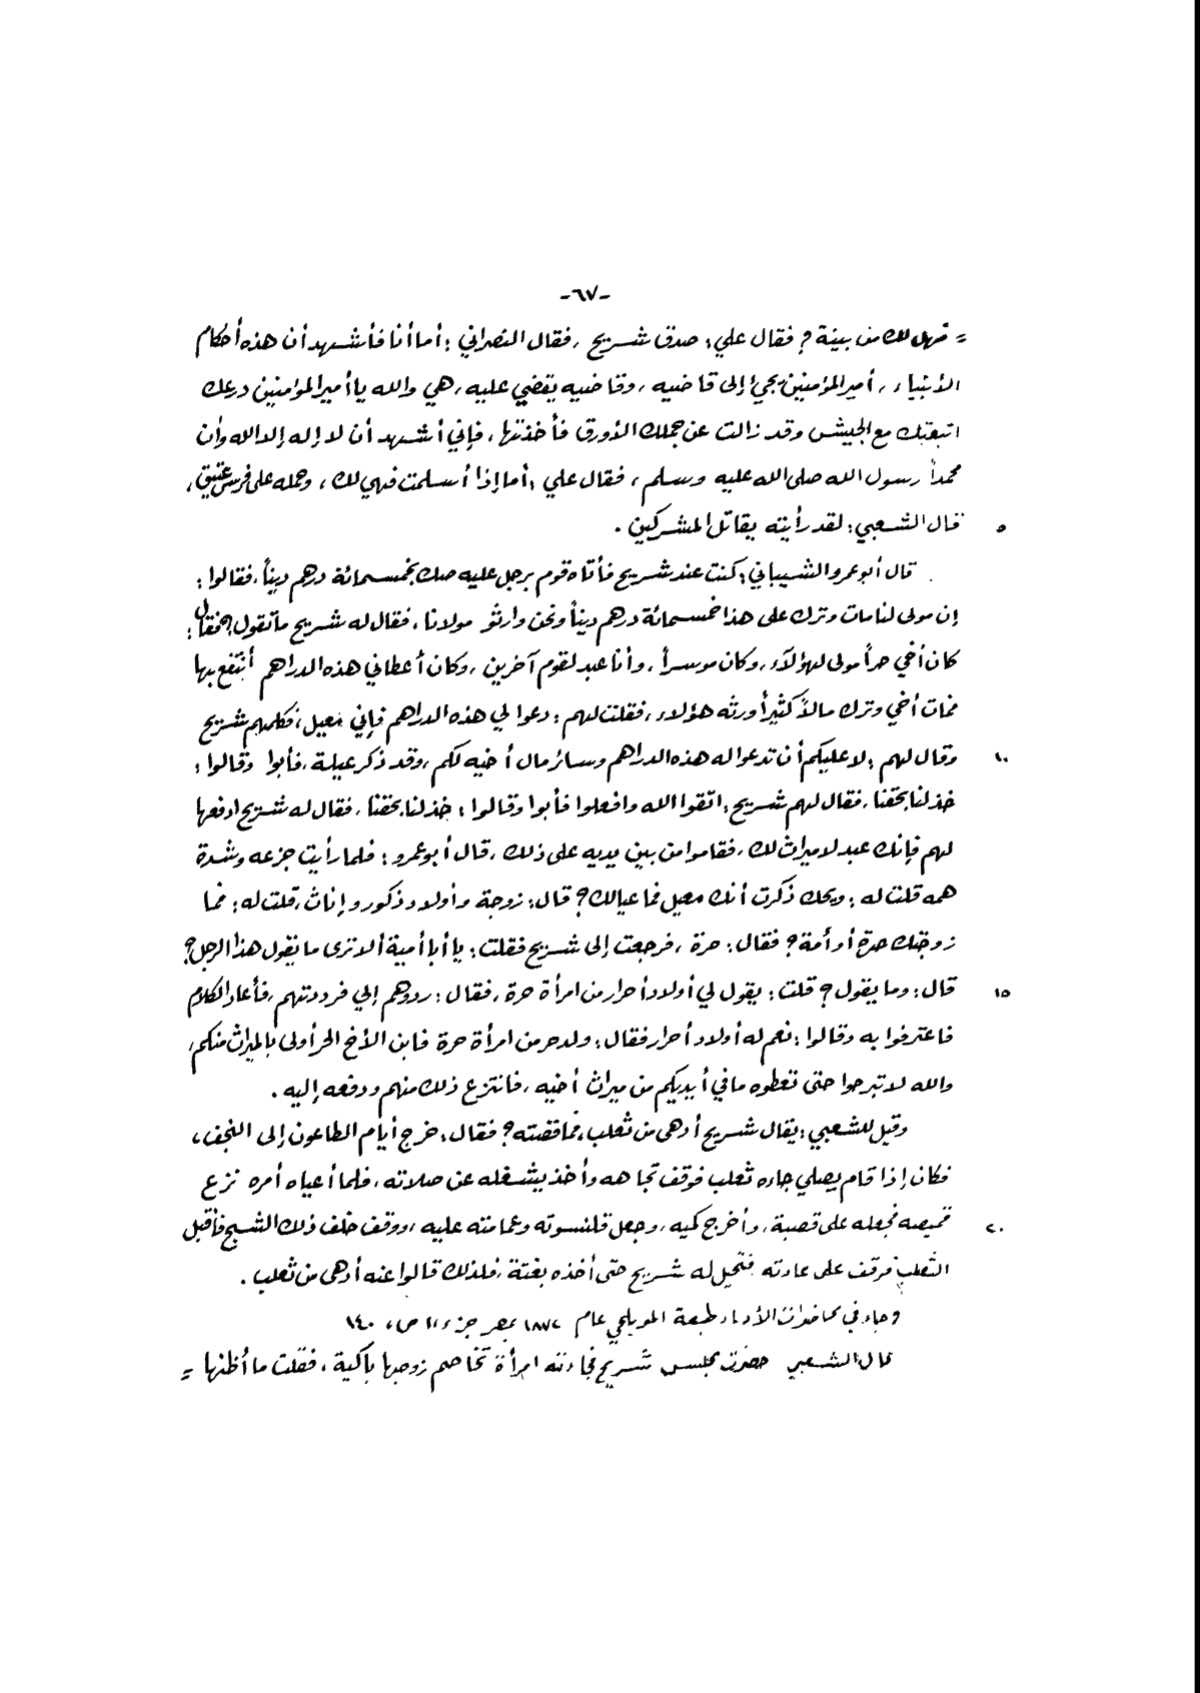 -٦٧-
= فهل لك من بينة؟ فقال علي: صدق شريح، فقال النصراني: أما أنا فأشهد أن هذه أحكام
الأنبياء، أمير المؤمنين يجيء إلى قاضيه، وقاضيه يقضي عليه، هي والله يا أمير المؤمنين درعك
اتبعتك مع الجيش وقد زالت عن جملك الأورق فأخذتها، فإني أشهد أن لا إله إلا الله وأن
محمداً رسول الله صلى الله عليه وسلم، فقال علي: أما إذا أسلمت فهي لك، وحمله على فرس عتيق،
٥ قال الشعبي: لقد رأيته يقاتل المشركين.
قال أبو عمرو الشيباني: كنت عند شريح فأتاه قوم برجل عليه صك بخمسمائة درهم ديناً، فقالوا:
إن مولى لنا مات وترك على هذا خمسمائة درهم ديناً ونحن وارثو مولانا، فقال له شريح ما تقول؟ فقال:
كان أخي حراً مولى لهؤلاء، وكان موسراً، وأنا عبد لقوم آخرين، وكان أعطاني هذه الدراهم أنتفع بها
فمات أخي وترك مالاً كثيراً ورثه هؤلاء، فقلت لهم: دعوا لي هذه الدراهم فإني معيل، فكلمهم شريح
١٠ وقال لهم: لا عليكم أن تدعوا له هذه الدراهم وسائر مال أخيه لكم، وقد ذكر عيلة، فأبوا وقالوا:
خذ لنا بحقنا، فقال لهم شريح: اتقوا الله وافعلوا فأبوا وقالوا: خذ لنا بحقنا، فقال له شريح ادفعها
لهم فإنك عبد لا ميراث لك، فقاموا من بين يديه على ذلك، قال أبو عمرو: فلما رأيت جزعه وشدة
همه قلت له: ويحك ذكرت أنك معيل فما عيالك؟ قال: زوجة وأولاد ذكور وإناث، قلت له: فما
زوجتك حرة أو أمة؟ فقال: حرة، فرجعت إلى شريح فقلت: يا أبا أمية ألا ترى ما يقول هذا الرجل؟
١٥ قال: وما يقول؟ قلت: يقول لي أولاد أحرار من امرأة حرة، فقال: ردوهم إلي فرددتهم، فأعاد الكلام
فاعترفوا به وقالوا: نعم له أولاد أحرار فقال: ولد حر من امرأة حرة فابن الأخ الحر أولى بالميراث منكم،
والله لا تبرحوا حتى تعطوه ما في أيديكم من ميراث أخيه، فانتزع ذلك منهم ودفعه إليه.
وقيل للشعبي: يقال شريح أدهى من ثعلب، فما قصته؟ فقال: خرج أيام الطاعون إلى النجف،
فكان إذا قام يصلي جاءه ثعلب فوقف تجاهه وأخذ يشغله عن صلاته، فلما أعياه أمره نزع
٢٠ قميصه فجعله على قصبة، وأخرج كميه، وجعل قلنسوته وعمامته عليه، ووقف خلف ذلك الشبح فأقبل
الثعلب فوقف على عادته فتحيل له شريح حتى أخذه بغتة، فلذلك قالوا عنه أدهى من ثعلب.
وجاء في محاضرات الأدباء طبعة المويلحي عام ١٨٧٢ بمصر جزء ١ ص، ١٤٠
قال الشعبي حضرت مجلس شريح فجاءته امرأة تخاصم زوجها باكية، فقلت ما أظنها =